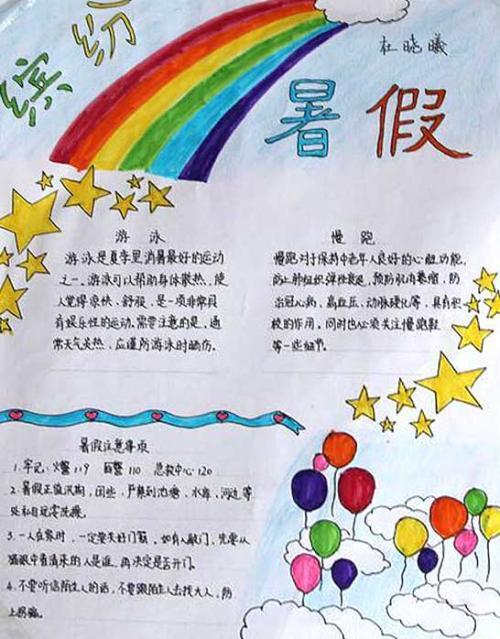 缤纷
杜晓曦
暑假
游泳
游泳是夏季里消暑最好的运动
之一。游泳可以帮助身体散热,使
人觉得凉快、舒服,是一项非常具
有娱乐性的运动。需要注意的是,通
常天气炎热,应谨防游泳时晒伤。
慢跑
慢跑对于保持中老年人良好的心脏功能,
防止肺组织弹性衰退,预防肌肉萎缩,防
治冠心病、高血压、动脉硬化等,具有积
极的作用。同时也必须关注慢跑鞋
等一些细节。
暑假注意事项
1.牢记:火警119 匪警110 急救中心120
2.暑假正值汛期,因此,严禁到池塘、水库、河边等
处私自玩耍洗澡。
3.一人在家时,一定要关好门窗。如有人敲门,先要从
猫眼中看清来的人是谁,再决定是否开门。
4.不要听信陌生人的话,不要跟陌生人去找大人,防
止拐骗。